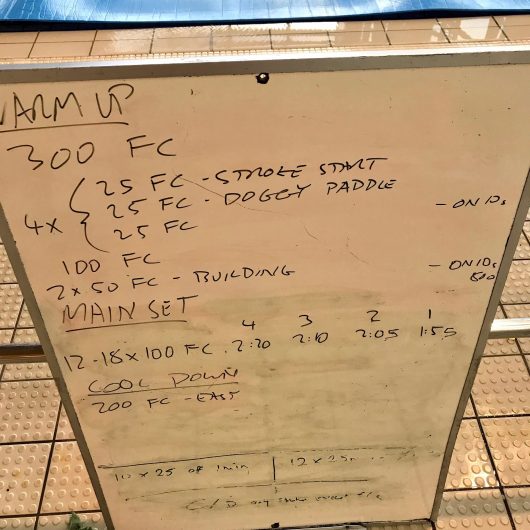 WARM UP
300 FC
4x { 25 FC - STROKE START
25 FC - DOGGY PADDLE
25 FC - ON 10s
100 FC
2 x 50 FC - BUILDING - ON 10s
800
MAIN SET
4 3 2 1
12-18 x 100 FC 2:20 2:10 2:05 1:55
COOL DOWN
200 FC - EASY
10 x 25 of 1min | 12 x 25m
C/D any